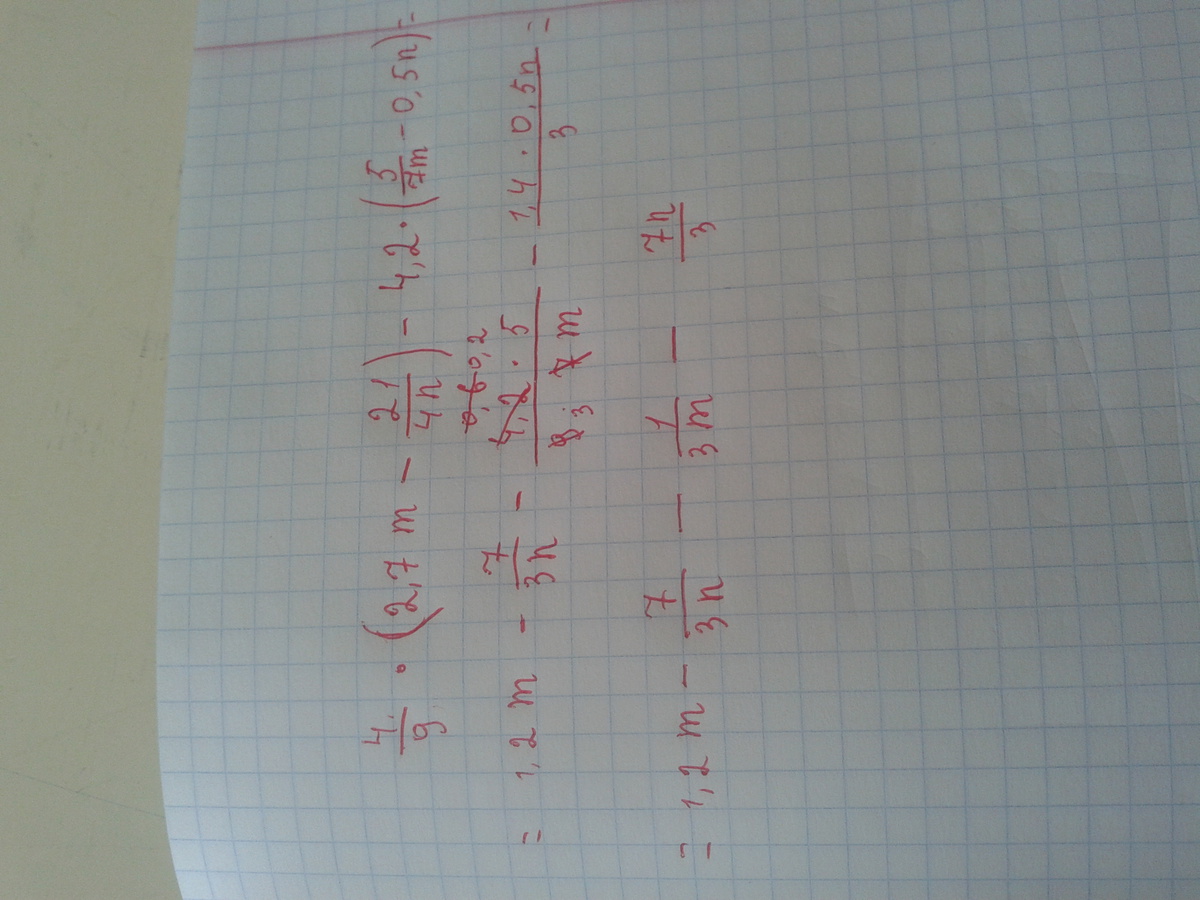 4/9 · (2,7 m - 21/4n) - 4,2 · (5/7m - 0,5n) =
= 1,2 m - 7/3n - 4,2 · 5 / 9 3 7 m - 1,4 · 0,5n / 3 =
0,6 0,2
= 1,2 m - 7/3n - 1/3m - 7n/3